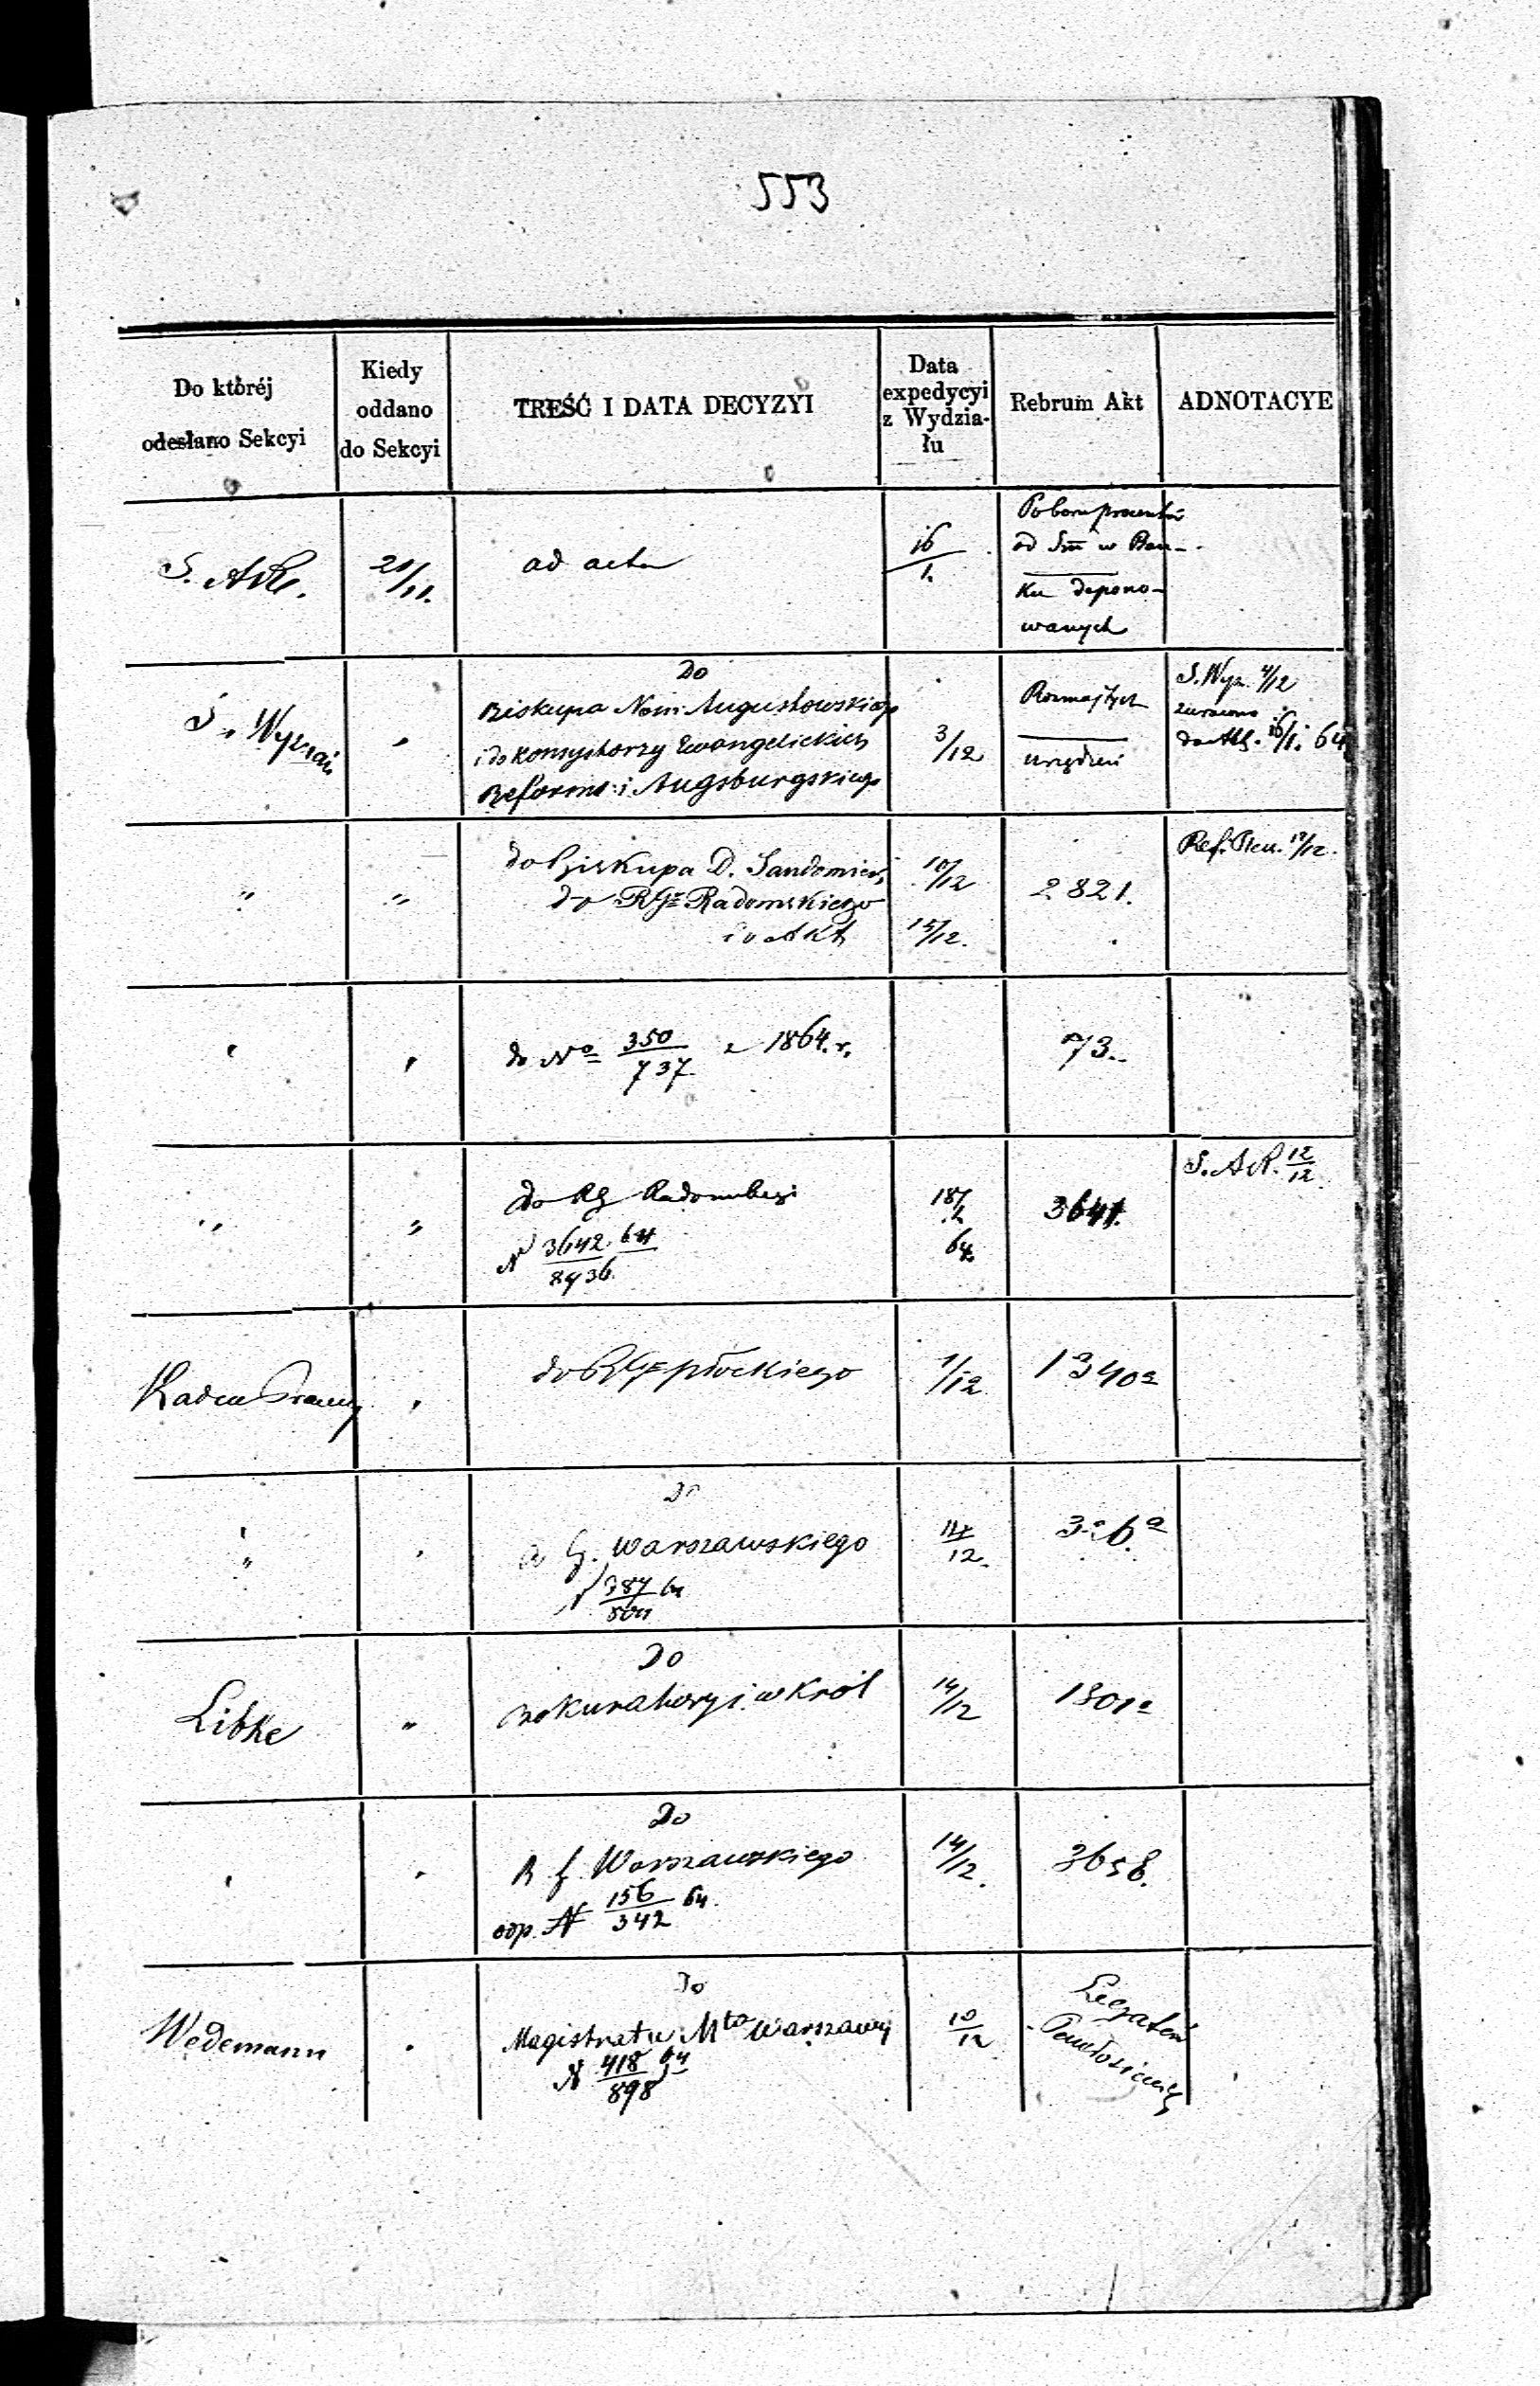 553
Do któréj
odesłano Sekcyi
Kiedy
oddano
do Sekcyi
TREŚĆ I DATA DECYZYI
Data
expedycyi
z Wydzia-
łu
Rebrum Akt
ADNOTACYE
21/11.
ad acta
16/1.
Poboru procentów
od Sm w Ban-
ku depono-
wanych
S. Wyznań
"
Do
Biskupa Nom: Augustowskiego
i do Konsystorzy Ewangelickich
Reform: i Augsburgskiego
3/12
Rozmaitych
urządzeń
S. Wyz. 4/12
zwrócono
16/1. 64
"
"
do Biskupa D. Sandomier,
do RGo Radomskiego
i o Akt
10/12
15/12.
2821.
12/12.
"
"
do No 350/737 z 1864. r.
73.
"
"
do RG Radomskiego
N 3642/8936 64
18/2
64
3641.
S. A R. 12/12
Radca Prawny
"
do RGo płockiego
1/12
1340a
"
"
Do
R G. Warszawskiego
N 387 64
14/12.
3a 6.a
Libke
"
Do
Prokuratoryi w Król
14/12
1301a
"
"
Do
R G. Warszawskiego
odp. N 156/342 64.
14/12.
3658.
Wedemann
"
Do
Magistratu Mta Warszawy
N 418/898 64
10/12
Legatów